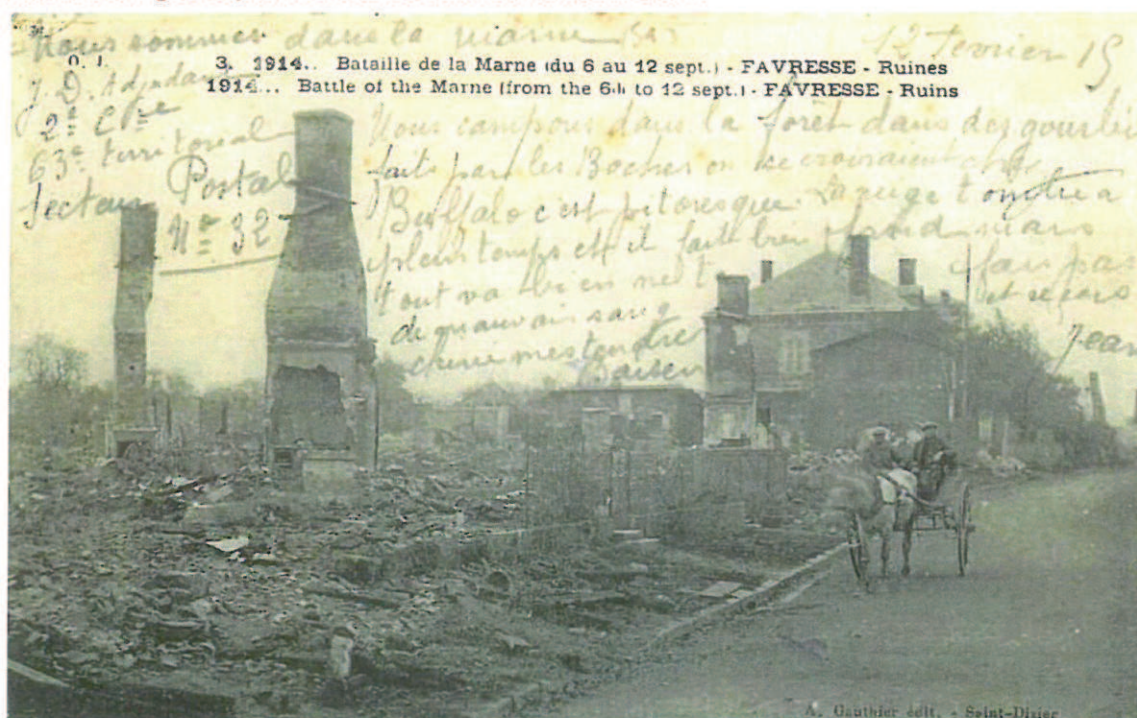 Nous sommes dans la marne
12 fevrier 15
O. J.
3. 1914.. Bataille de la Marne (du 6 au 12 sept.) - FAVRESSE - Ruines
1914... Battle of the Marne (from the 6th to 12 sept.) - FAVRESSE - Ruins
J. D. Adjudant
2e Cie
63e territorial
Secteur Postal
No 32
Nous campons dans la forêt dans des gourbis
faits par les Boches on se croiraient chez
Buffalo c'est pitoresque. La neige tombe a
plein temps et il fait bien froid mais
tout va bien ne t fais pas
de mauvais sang et reçois
cherie mes tendres
Baisers
Jean
A. Gauthier édit. - Saint-Dizier